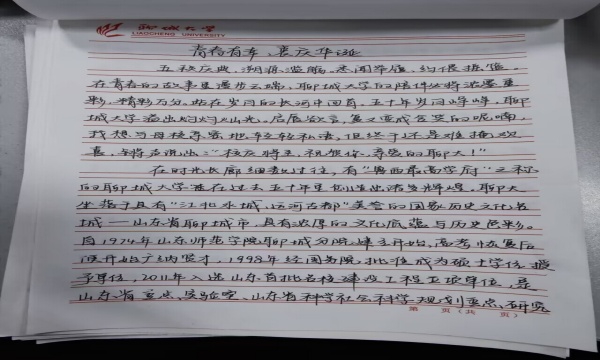 聊城大学
LIAOCHENG UNIVERSITY
青春有幸,喜庆华诞
五秩庆典,
在青春的故事里漫步云端,聊城大学的陪伴处处将浓墨重
彩,精彩万分。站在岁月的长河中回首,五十年岁月峥嵘,聊城
大学溢出灼灼火光。
我想与母校亲密地轻轻私语,但终于还是难掩欢
喜,轻声说出:“校庆将至,祝愿你,亲爱的聊大!”
在时光长廊细数过往,有“鲁西最高学府”之称
的聊城大学在过去五十年里创造出诸多辉煌。聊大
坐落于具有“江北水城,运河古都”美誉的国家历史文化名
城——山东省聊城市,具有浓厚的文化底蕴与历史色彩。
自1974年山东师范学院聊城分院建立开始,高考恢复后
便开始广纳贤才,1998年经国务院批准成为硕士学位授
予单位,2011年入选山东首批名校建设工程立项单位,是
山东省重点实验室、山东省科学社会科学规划重点研究
第 页(共 页)